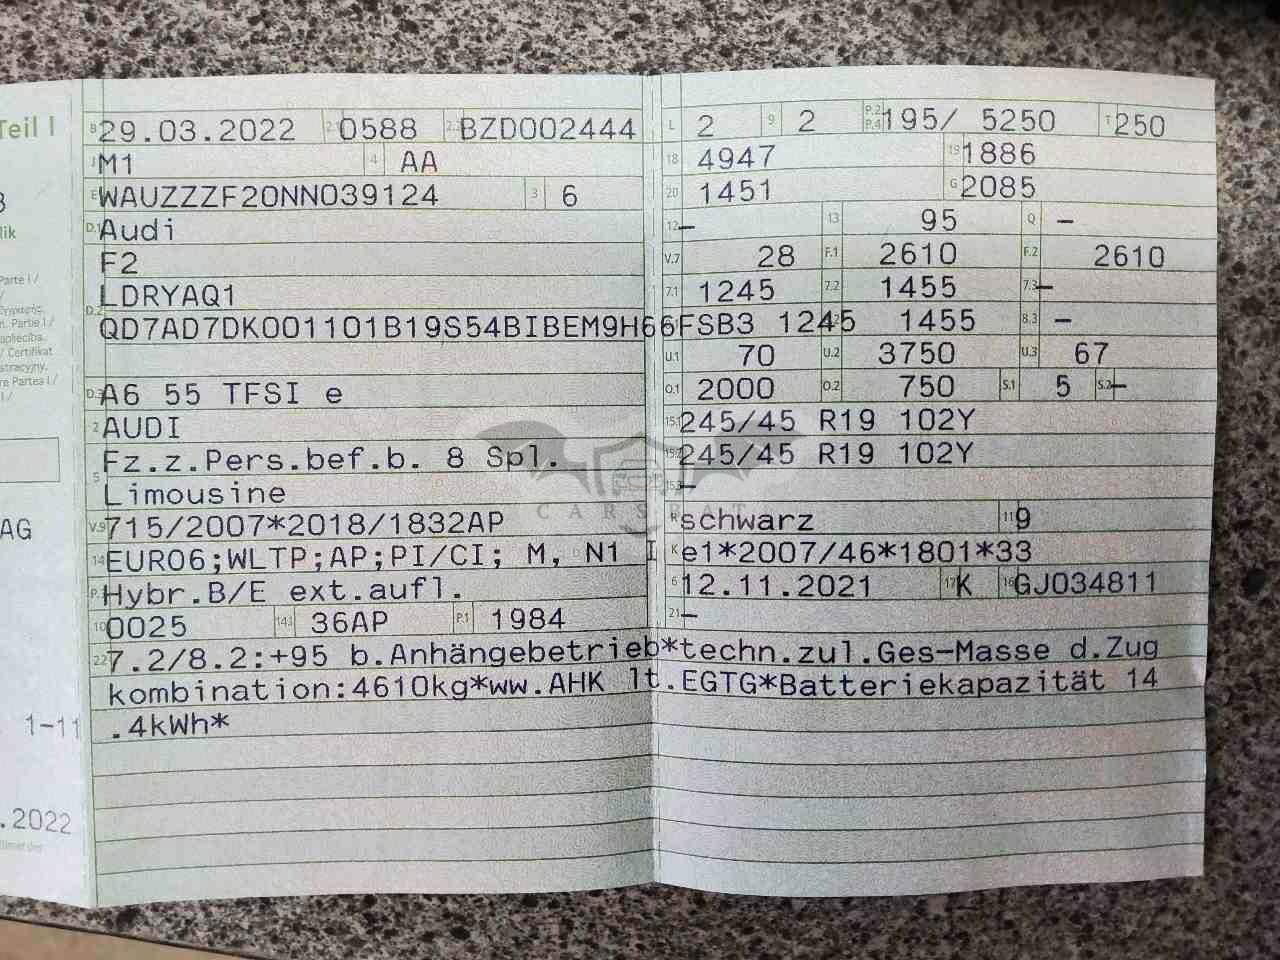 Teil I
B 29.03.2022 2.1 0588 2.2 BZD002444
J M1 4 AA
E WAUZZZF20NN039124 3 6
D.1 Audi
F2
LDRYAQ1
D.2 QD7AD7DK001101B19S54BIBEM9H66FSB3 1245 1455 8.3 —
D.3 A6 55 TFSI e
2 AUDI
5 Fz.z.Pers.bef.b. 8 Spl.
Limousine
V.9 715/2007*2018/1832AP
14 EURO6;WLTP;AP;PI/CI; M, N1 I
P.3 Hybr.B/E ext.aufl.
10 0025 14.1 36AP P.1 1984
22 7.2/8.2:+95 b.Anhängebetrieb*techn.zul.Ges-Masse d.Zug
kombination:4610kg*ww.AHK lt.EGTG*Batteriekapazität 14
.4kWh*
L 2 9 2 P.2 P.4 195/ 5250 T 250
18 4947 19 1886
20 1451 G 2085
12 — 13 95 Q —
V.7 28 F.1 2610 F.2 2610
7.1 1245 7.2 1455 7.3 —
U.1 70 U.2 3750 U.3 67
O.1 2000 O.2 750 S.1 5 S.2 —
15.1 245/45 R19 102Y
15.2 245/45 R19 102Y
15.3 —
R schwarz 11 9
K e1*2007/46*1801*33
6 12.11.2021 17 K 16 GJ034811
21 —
lik
Parte I /
Partie I /
/ Certifikat
AG
1-11
.2022
CARSBAT